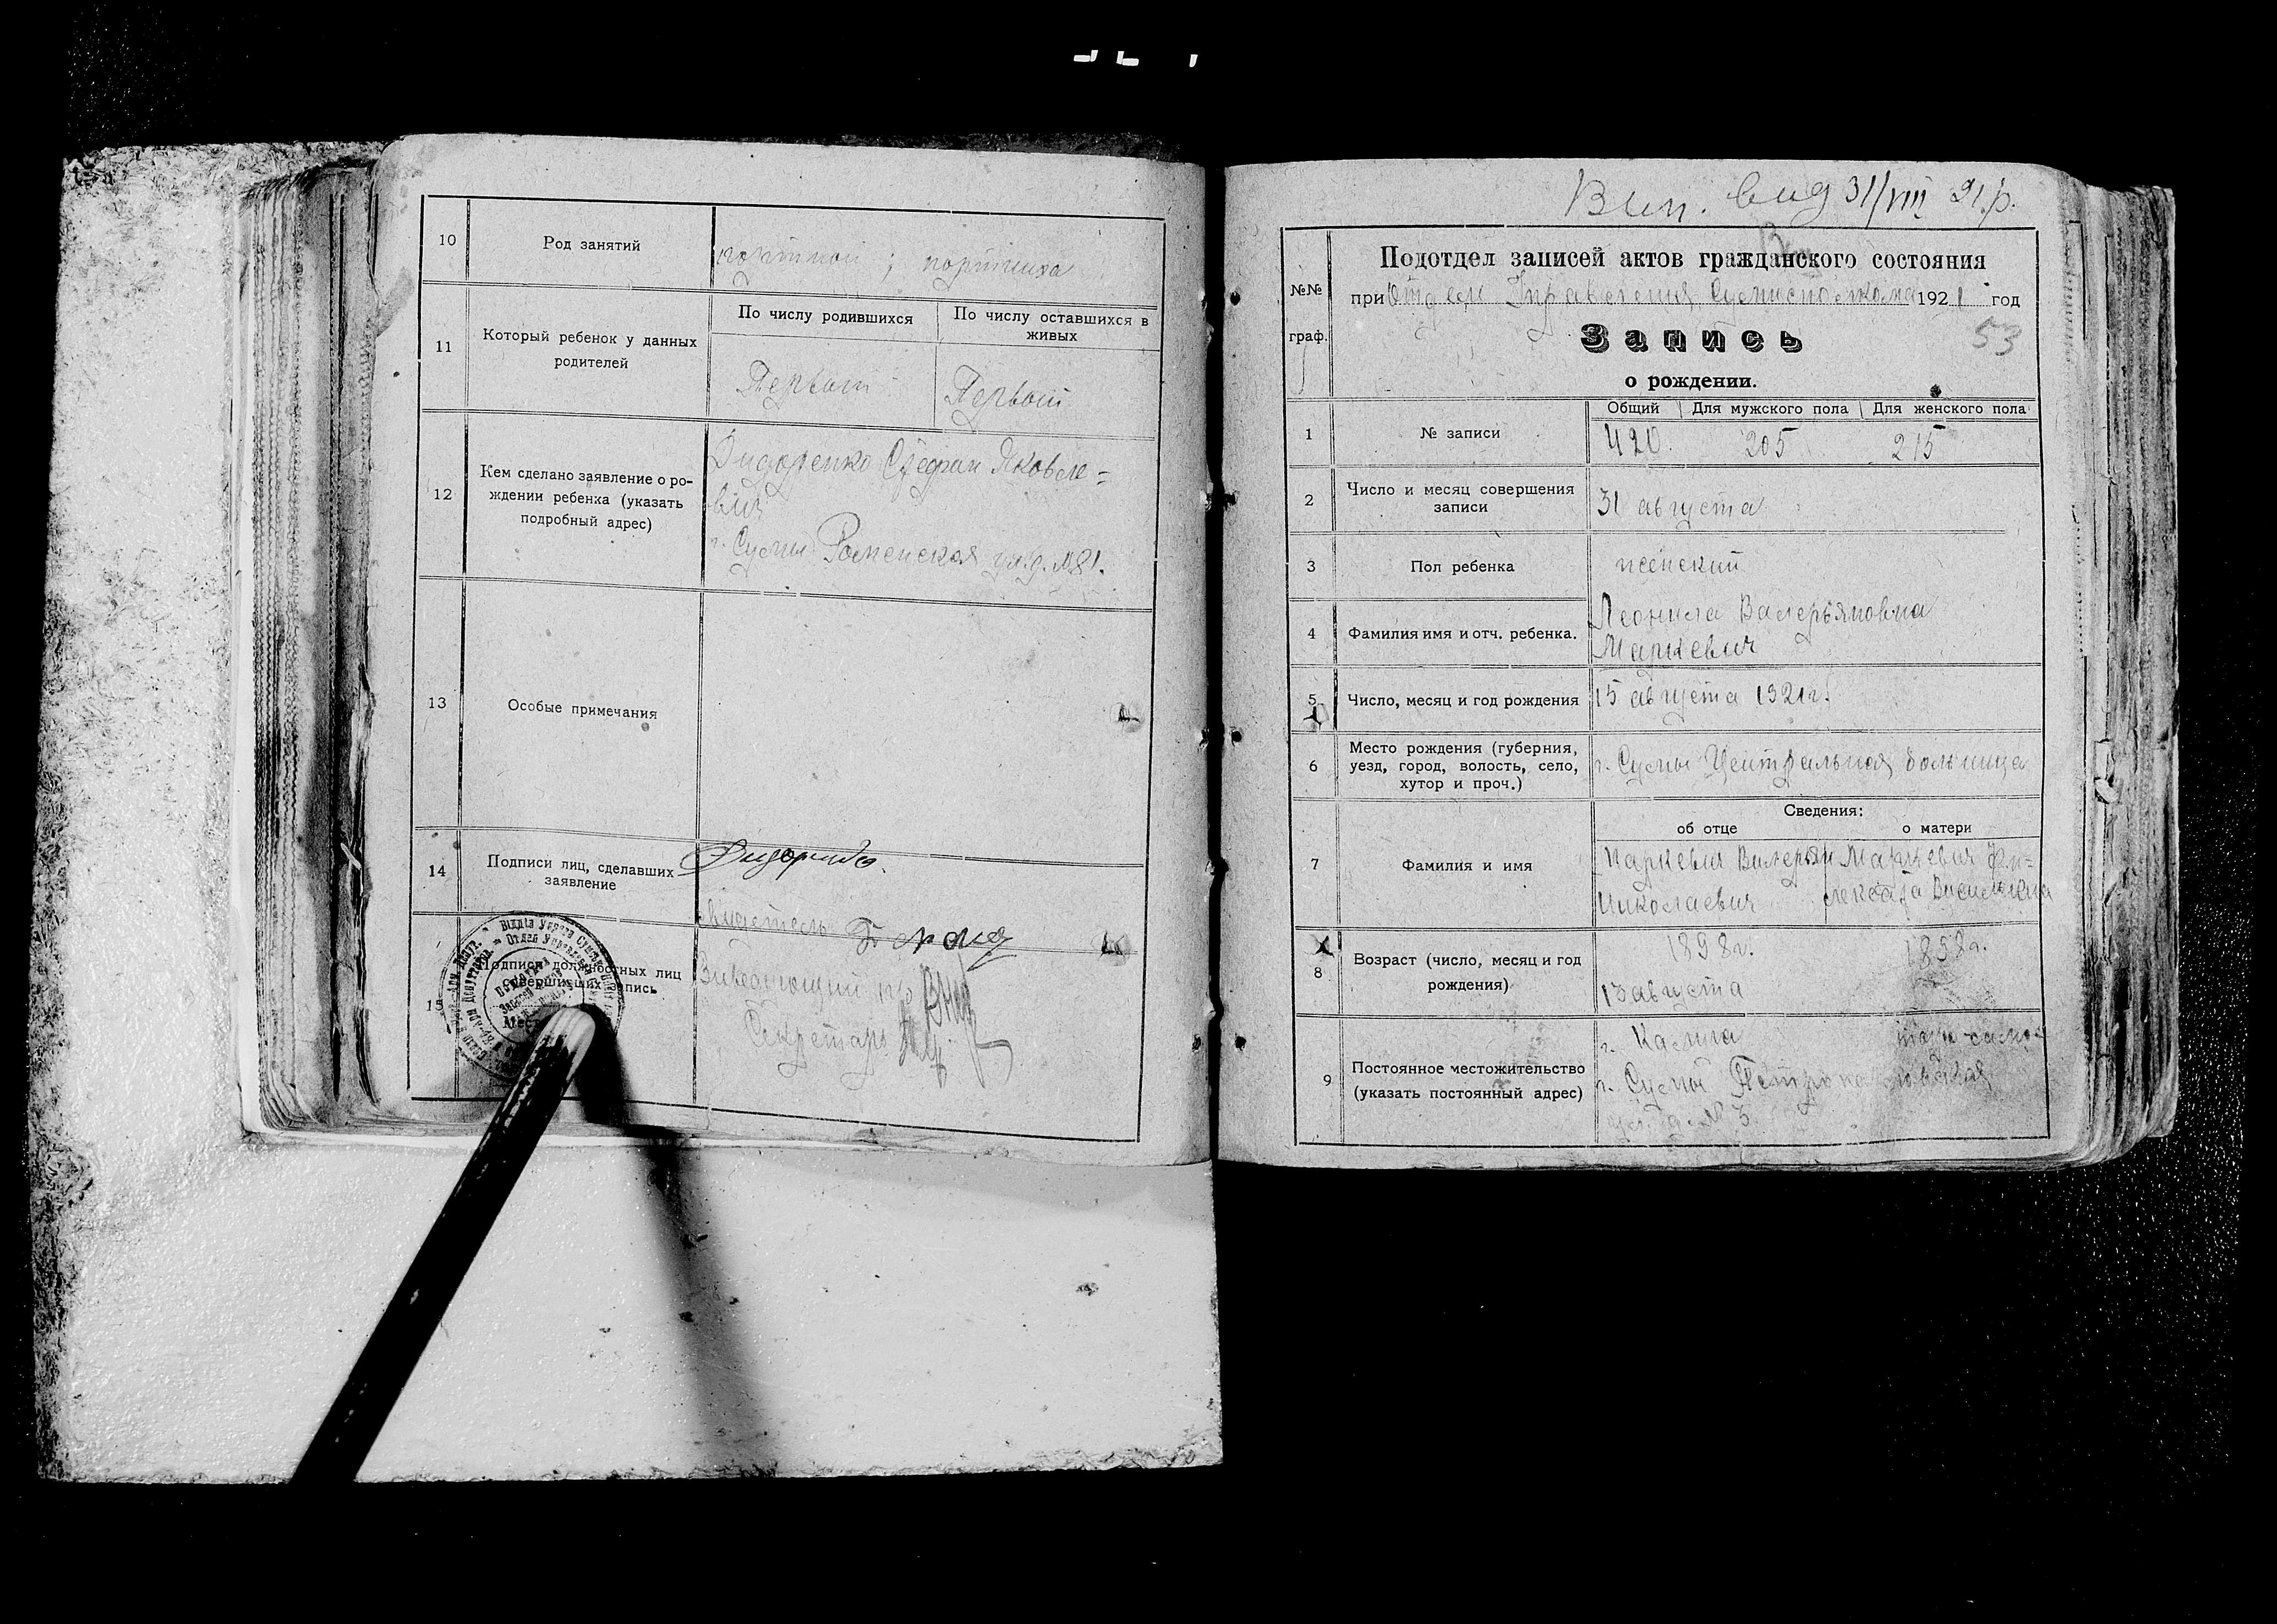 10
Род занятий
портной ; портниха
11
Который ребенок у данных
родителей
По числу родившихся
По числу оставшихся в
живых
Первый
Первый
12
Кем сделано заявление о ро-
ждении ребенка (указать
подробный адрес)
Стефан Яковле=
вич
г. Сумы Роменская ул. д. №81.
13
Особые примечания
14
Подписи лиц, сделавших
заявление
свидетель
15
Подписи должностных лиц
совершивших запись
Заведующий
Секретарь
Вип. вид 31/VIII 21.р.
№№
граф.
Подотдел записей актов гражданского состояния
при Отделе Управления 1921 год
Запись
53
о рождении.
1
№ записи
Общий
Для мужского пола
Для женского пола
420.
205
215
2
Число и месяц совершения
записи
31 августа
3
Пол ребенка
женский
4
Фамилия имя и отч. ребенка.
Леонила Валерьяновна
Маркевич
5
Число, месяц и год рождения
15 августа 1921г.
6
Место рождения (губерния,
уезд, город, волость, село,
хутор и проч.)
г. Сумы Центральная больница
7
Фамилия и имя
Сведения:
об отце
о матери
Маркевич Валерьян
Николаевич
Маркевич
Васильевна
8
Возраст (число, месяц и год
рождения)
1898г.
13 августа
1898г.
9
Постоянное местожительство
(указать постоянный адрес)
г.
г. Сумы
ул. д. № 3.